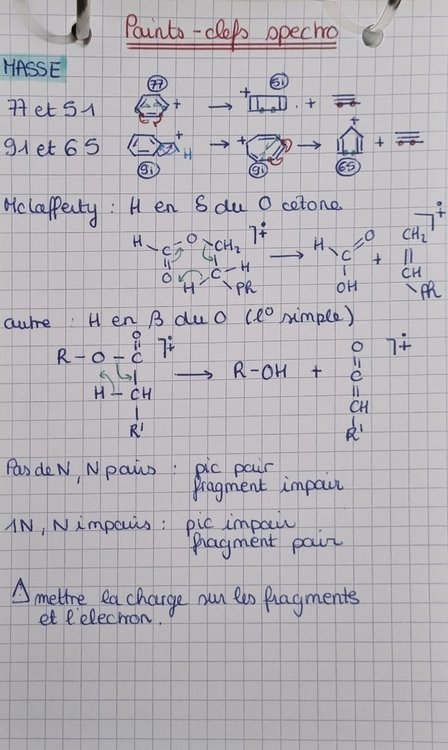 Points-clefs spectro
MASSE
77 et 51
77
+
→
+
51
+
91 et 65
+
H
91
→
+
91
→
+
65
+
Mc Lafferty : H en δ du O cétone
H C O CH2 ⌉+• → H C O + CH2 ⌉+•
O H C H OH CH
PR PR
autre : H en β du O (l° simple)
R-O-C ⌉+• → R-OH + O ⌉+•
O C
H-CH CH
R' R'
Pas de N, N pairs : pic pair
fragment impair
1N, N impairs : pic impair
fragment pair
⚠ mettre la charge sur les fragments
et l'électron.